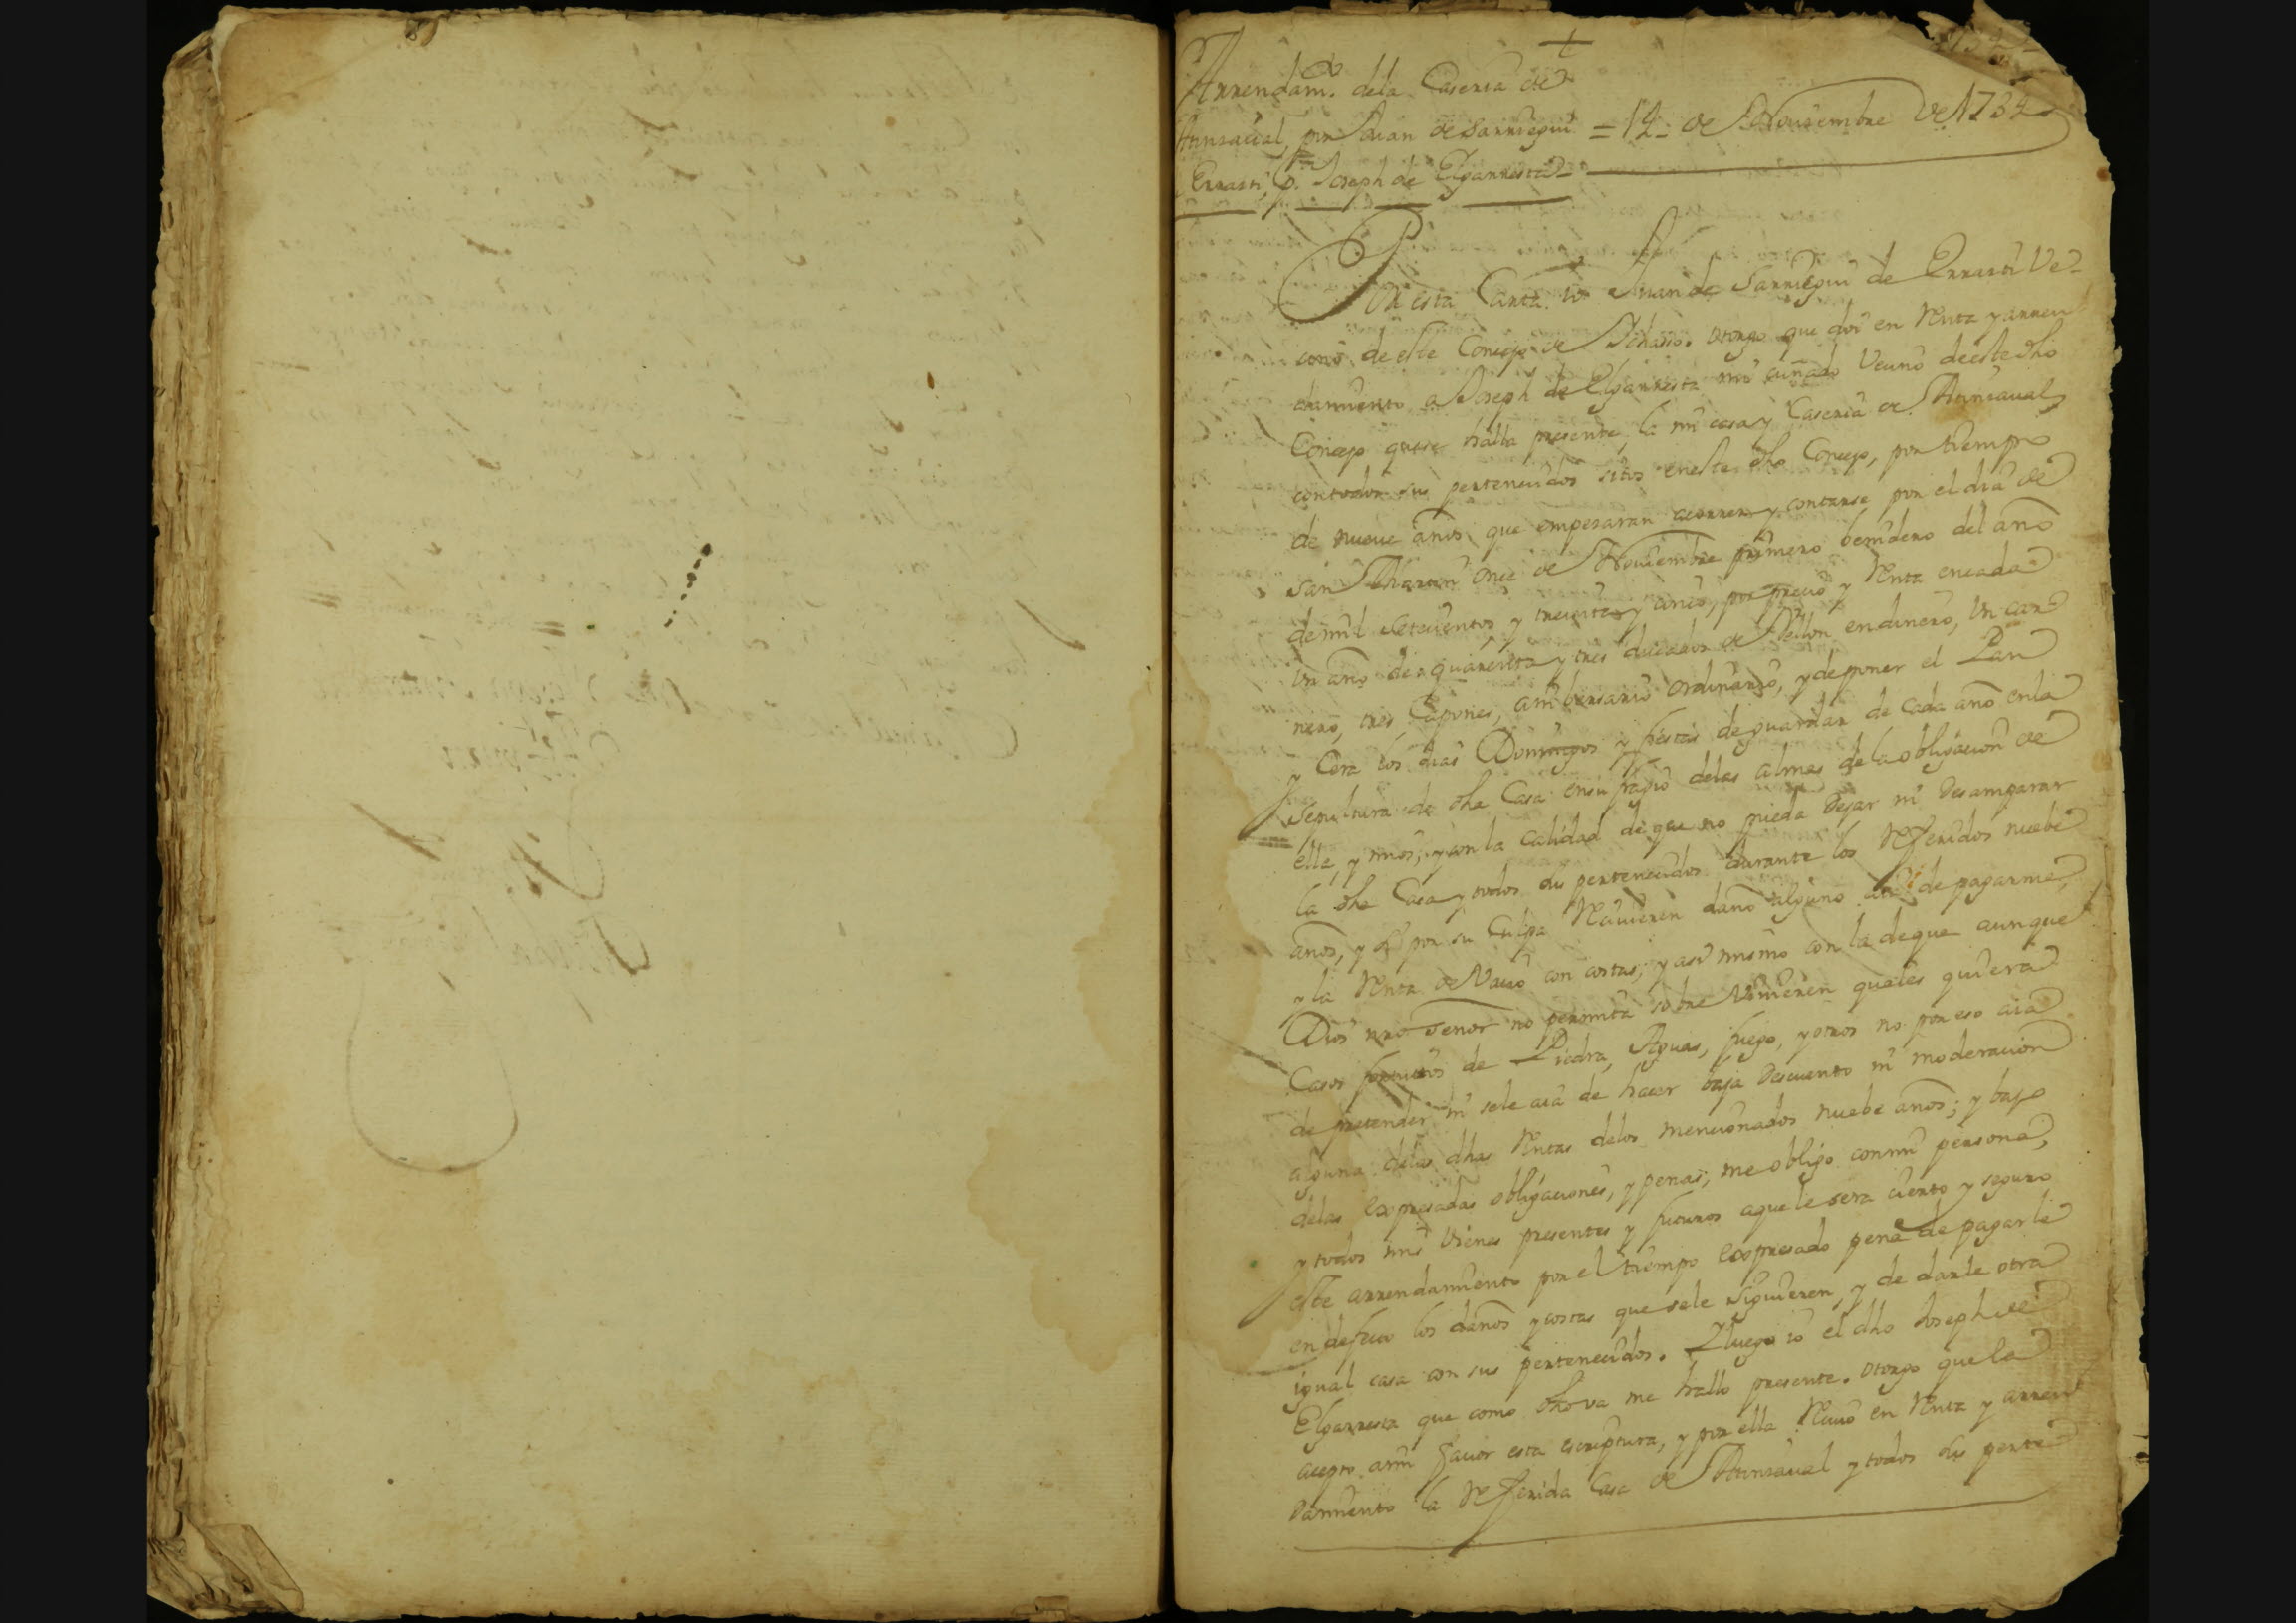 Arrendam.to dela Caseria de
por Juan de Sarriegui = 12 = de Noviembre de 1734
Errasti, Joseph de Elgarresta
Por esta Carta io Juan de Sarriegui de Errasti Ve-
cino de este Concejo de otorgo que doi en Renta y arren
damiento a Joseph de Elgarresta mi cuñado Vecino de este dho
Concejo que se halla presente, la mi casa y Caseria de
con todos sus pertenecidos sitos en este dho Concejo, por tiempo
de nueve años, que empesaran acorrer y contarse por el dia de
san Martin onze de Noviembre primero benidero del año
de mil setecientos y treinta y cinco, por precio y Renta encada
Un año de quarenta y tres ducados de Vellon endinero, Un car
nero, tres Capones, ambersario ordinario, y deponer el Pan
y Cera los dias Domingos y fiestas deguardar de Cada año enla
sepultura de dha Casa ensufragio delas almas dela obligacion de
ella, y mios, y con la calidad de que no pueda Dejar ni Desamparar
la dha Casa y todos sus pertenecidos durante los Referidos nuebe
años, y si por su Culpa Recivieren daño alguno aia de pagarme,
y la Renta de Vacio con costas; y asi mismo con la deque aunque
Dios nro Señor no permita sobre Vinieren quales quiera
Casos fortuitos de Piedra, Aguas, fuego, y otros no por eso aia
de pretender ni sele aia de hacer baja Descuento ni moderacion
alguna delas dhas Rentas delos mencionados nuebe años; y bajo
delas expresadas obligaciones, y penas, me obligo conmi persona,
y todos mis vienes presentes y futuros aquele sera cierto y seguro
este arrendamiento por el tiempo expresado pena de pagarle
en defecto los daños y costas que sele siguieren, y de darle otra
igual casa con sus pertenecidos. Y luego io el dho Joseph de
Elgarresta que como dho va me hallo presente. otorgo que la
acepto ami favor esta escriptura, y por ella Recivo en Renta y arren
damiento la Referida Casa de y todos sus perte